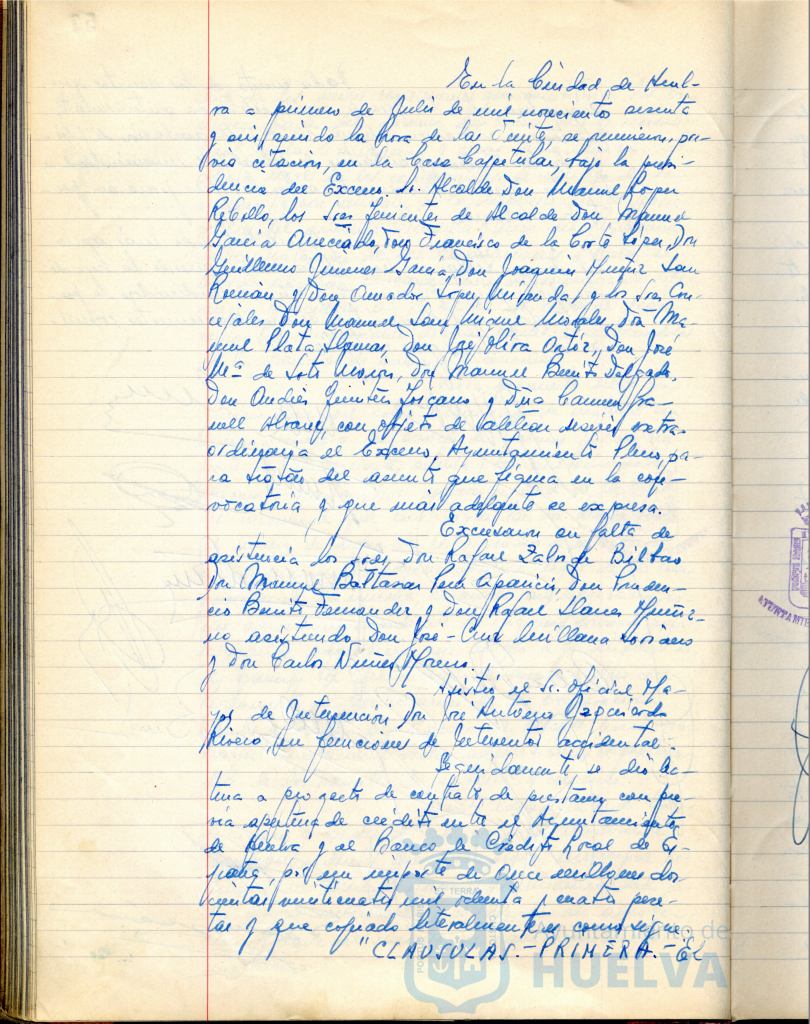 En la Ciudad de Huel-
va a primero de Julio de mil novecientos sesenta
y seis, siendo la hora de las veinte, se reunieron, pre-
via citación, en la Casa Capitular, bajo la presi-
dencia del Excmo. Sr. Alcalde Don Manuel López
Rebollo, los Sres Tenientes de Alcalde Don Manuel
García Don Francisco de la Corte López, Don
Guillermo Jimenez García, Don Joaquín Muñiz San
Román y Don Amador López Miranda, y los Sres Con-
cejales Don Manuel San Miguel Morales, Don Ma-
nuel Plata Llamas, Don José Oliva Ortíz, Don José
Mª de Soto Morón, Don Manuel Benito Delgado,
Don Andrés Toscano y Dña Carmen
Alvarez, con objeto de celebrar sesión extra-
ordinaria el Excmo. Ayuntamiento Pleno, pa-
ra tratar del asunto que figura en la con-
vocatoria y que más adelante se expresa.
Excusaron su falta de
asistencia los Sres. Don Rafael de Bilbao
Don Manuel Baltasar Pena Aparicio, Don Pruden-
cio Benito Fernandez y Don Rafael Llanes Muñiz-
no asistiendo Don José-Cruz Millana Soriano
y Don Carlos Nuñez Moreno.
Asistió el Sr. Oficial Ma-
yor de Intervención Don José Antonio Izquierdo
Rivero, en funciones de Interventor accidental.
Seguidamente se dió lec-
tura a proyecto de contrato de préstamo con pre-
via apertura de crédito entre el Ayuntamiento
de Huelva y el Banco de Crédito Local de Es-
paña, por un importe de once millones dos-
cientas veinticuatro mil ochenta y cuatro pese-
tas y que copiado literalmente es como sigue:
"CLAUSULAS.- PRIMERA.- El
Ayuntamiento de
HUELVA
AYUNTAMIE